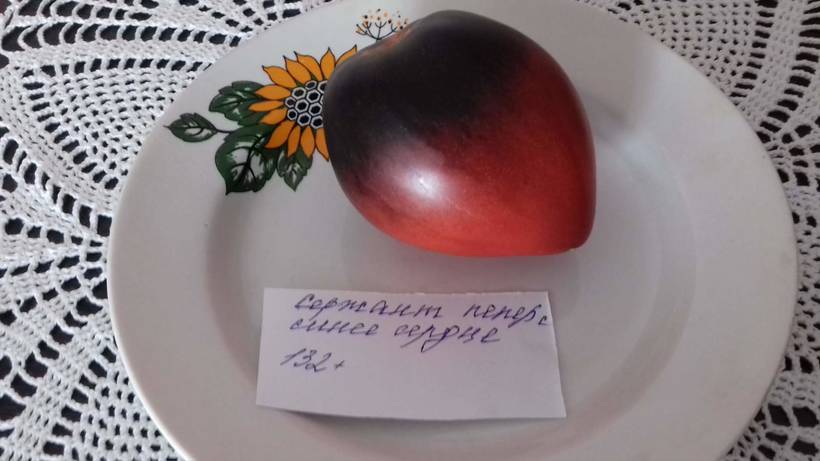 сержант пепер с
синее сердце
132 г